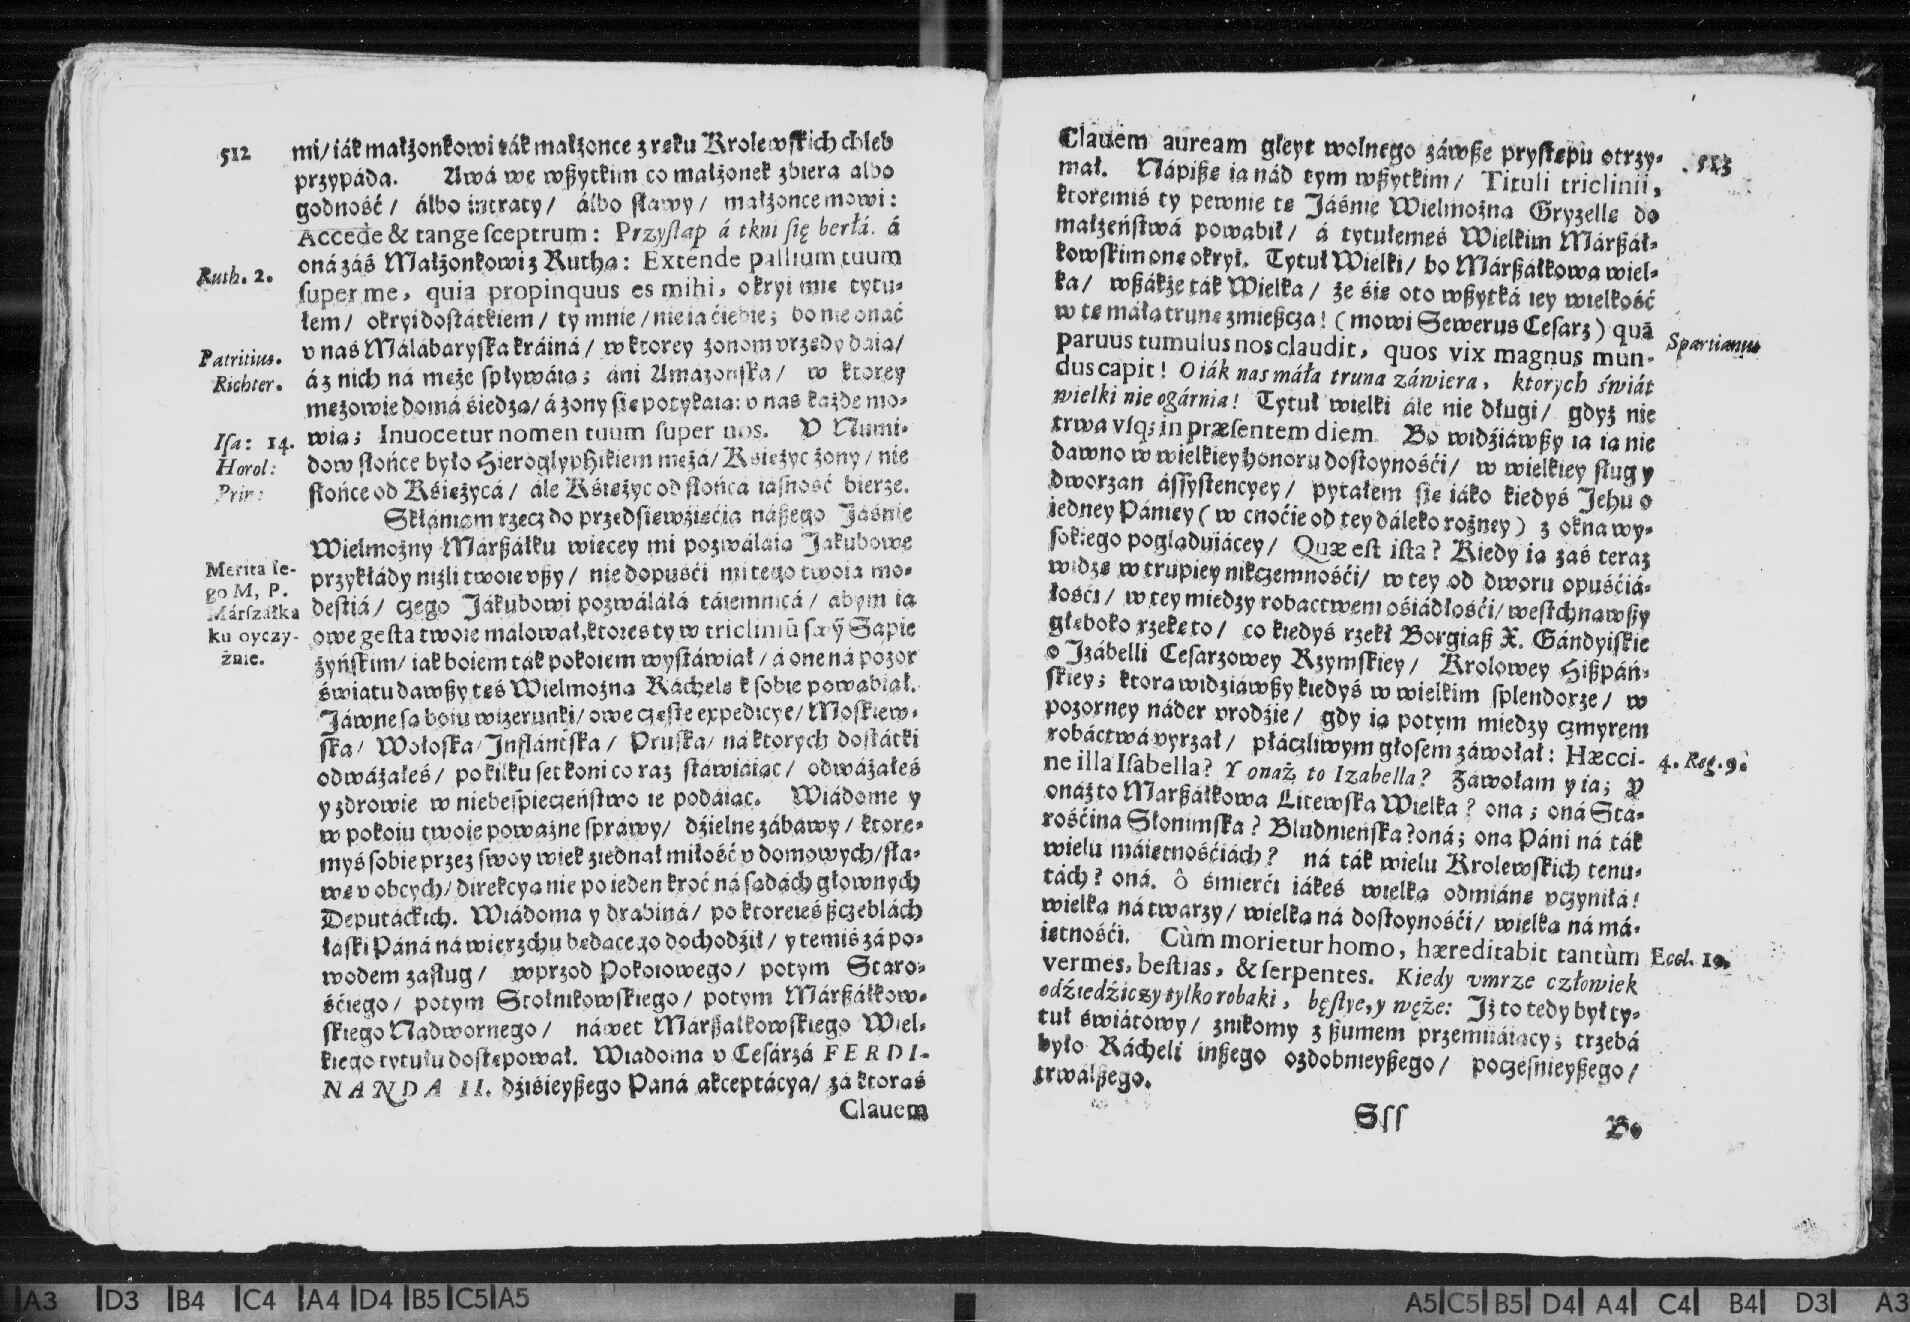 512
mi/ iák małżonkowi ták małżonce z ręku Krolewſkich chleb
przypáda. Awá we wßytkim co małżonek zbiera albo
godność/ álbo intraty/ álbo ſławy/ małżonce mowi:
Accede & tange ſceptrum: Przyſtąp á tkni ſię berłá. á
oná záś Małżonkowi z Rutha: Extende pallium tuum
Ruth. 2.
ſuper me, quia propinquus es mihi, okryi mię tytu-
łem/ okryi doſtátkiem/ ty mnie/ nie ia ćiebie; bo nie onáć
v nas Málábaryſka kráiná/ w ktorey żonom vrzędy dáią/
Patritius.
á z nich ná męże ſpływáią; áni Amazonſka/ w ktorey
Richter.
mężowie domá śiedzą/ á żony ſię potykáią: v nas każde mo-
wią; Inuocetur nomen tuum ſuper nos. V Numi-
Iſa: 14.
dow ſłońce było Hieroglyphikiem mężá/ Kśiężyc żony/ nie
Horol:
ſłońce od Kśiężycá/ ále Kśiężyc od ſłońcá iáſność bierze.
Prin:
Skłániam rzecz do przedſięwźięćia náßego Jáśnie
Wielmożny Márßáłku więcey mi pozwáláią Jakubowe
Merita ſe-
przykłády niżli twoie vßy/ nie dopuśći mi tego twoiá mo-
go M, P.
deſtiá/ czego Jákubowi pozwáláłá táiemnicá/ ábym ia
Márſzałka
owe geſta twoie malował, ktoreś ty w tricliniū ſwÿ Sapie
ku oyczy-
żyńſkim/ iák boiem ták pokoiem wyſtáwiał/ á one ná pozor
źnie.
świátu dawßy teś Wielmożną Ráchelę k ſobie powabiał.
Jáwne ſą boiu wizerunki/ owe częſte expedicye/ Moſkiew-
ſka/ Wołoſka/ Inflántſka/ Pruſka/ ná ktorych doſtátki
odważáłeś/ po kilku ſet koni co raz ſtáwiáiąc/ odważáłeś
y zdrowie w niebeſpieczeńſtwo ie podáiąc. Wiádome y
w pokoiu twoie poważne ſpráwy/ dźielne zábáwy/ ktore-
myś ſobie przez ſwoy wiek ziednał miłość v domowych/ ſła-
wę v obcych/ direkcya nie po ieden kroć ná ſądách głownych
Deputáckich. Wiádoma y drabiná/ po ktoreieś ßczeblách
łaſki Páná ná wierzchu będącego dochodźił/ y temiś zá po-
wodem zaſług/ wprzod Pokoiowego/ potym Staro-
śćiego/ potym Stolnikowſkiego/ potym Márßáłkow-
ſkiego Nadwornego/ náwet Márßałkowſkiego Wiel-
kiego tytułu doſtępował. Wiádoma v Ceſárzá FERDI-
NANDA II. dźiśieyßego Páná akceptácya/ zá ktorąś
Clauem
Clauem auream gleyt wolnego záwße pryſtępu otrzy-
513
mał. Nápißę ia nád tym wßytkim/ Tituli triclinii,
ktoremiś ty pewnie tę Jáśnie Wielmożną Gryzellę do
małżeńſtwá powabił/ á tytułemeś Wielkim Márßáł-
kowſkim onę okrył. Tytuł Wielki/ bo Márßáłkowa wiel-
ka/ wßákże ták Wielka/ że śię oto wßytká iey wielkość
w tę máłą trunę zmießcza! (mowi Sewerus Ceſarz) quā
paruus tumulus nos claudit, quos vix magnus mun-
Spartianus
dus capit! O iák nas máła truna záwiera, ktorych świát
wielki nie ogárnia! Tytuł wielki ále nie długi/ gdyż nie
trwa vſq; in præſentem diem. Bo widźiáwßy ia ią nie
dawno w wielkiey honoru doſtoynośći/ w wielkiey ſług y
dworzan áſſyſtencyey/ pytałem ſię iáko kiedyś Jehu o
iedney Pániey (w cnoćie od tey dáleko rożney) z okná wy-
ſokiego poglądáiącey/ Quæ eſt iſta? Kiedy ią záś teraz
widzę w trupiey nikczemnośći/ w tey od dworu opuśćiá-
łośći/ w tey między robactwem ośiádłośći/ weſtchnąwßy
głęboko rzekę to/ co kiedyś rzekł Borgiaß X. Gándyiſkie
o Izábelli Ceſarzowey Rzymſkiey/ Krolowey Hißpáń-
ſkiey; ktorą widźiawßy kiedyś w wielkim ſplendorze/ w
pozorney náder vrodźie/ gdy ią potym między czmyrem
robáctwá vyrzał/ płáczliwym głoſem záwołał: Hæcci-
ne illa Iſabella? Y onaż to Izabella? Záwołam y ia; Y
4. Reg. 9.
onáż to Marßáłkowa Litewſka Wielka? oná; oná Stá-
rośćina Słonimſka? Bludnieńſka? oná; oná Páni ná ták
wielu máiętnośćiách? ná ták wielu Krolewſkich tenu-
tách? oná. ô śmierći iákeś wielką odmiánę vczyniłá!
wielką ná twarzy/ wielką ná doſtoynośći/ wielką ná má-
iętnośći. Cùm morietur homo, hæreditabit tantùm
Eccl. 10.
vermes, beſtias, & ſerpentes. Kiedy vmrze człowiek
odźiedźiczy tylko robaki, bęſtye, y węże: Iż to tedy był ty-
tuł świátowy/ znikomy z ßumem przemiiáiący; trzebá
było Rácheli inßego ozdobnieyßego/ poczeſnieyßego/
trwálßego.
Sſſ
Bo